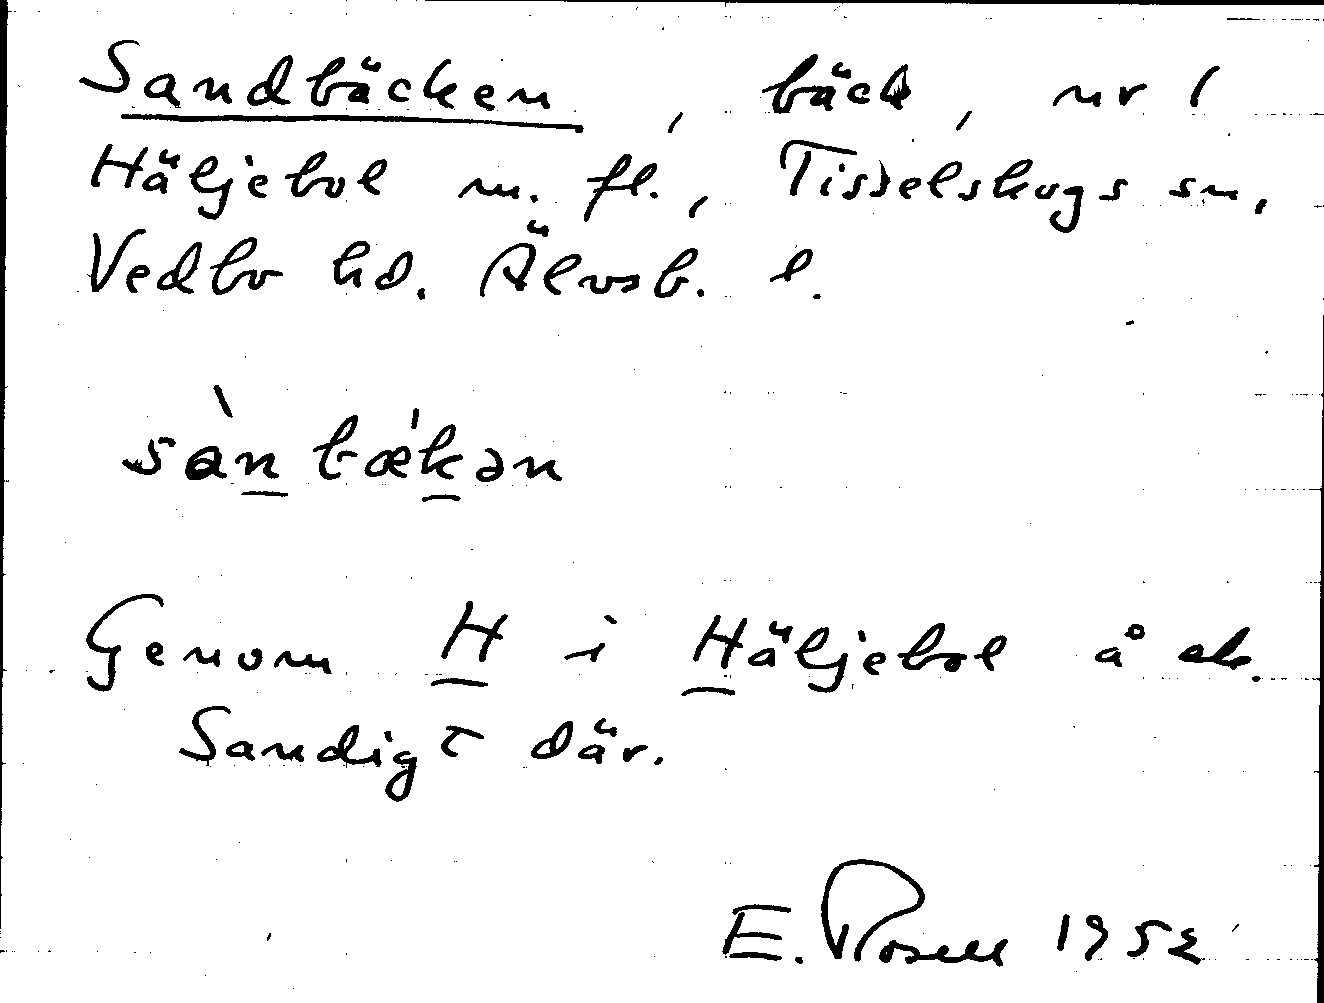 Sandbäcken, bäck, nr 1
Häljebol m. fl., Tisselskogs sn,
Vedbo hd. Älvsb. l.
sàn bækən
Genom H i Häljebol å ek.
Sandigt där.
E. Rosell 1952